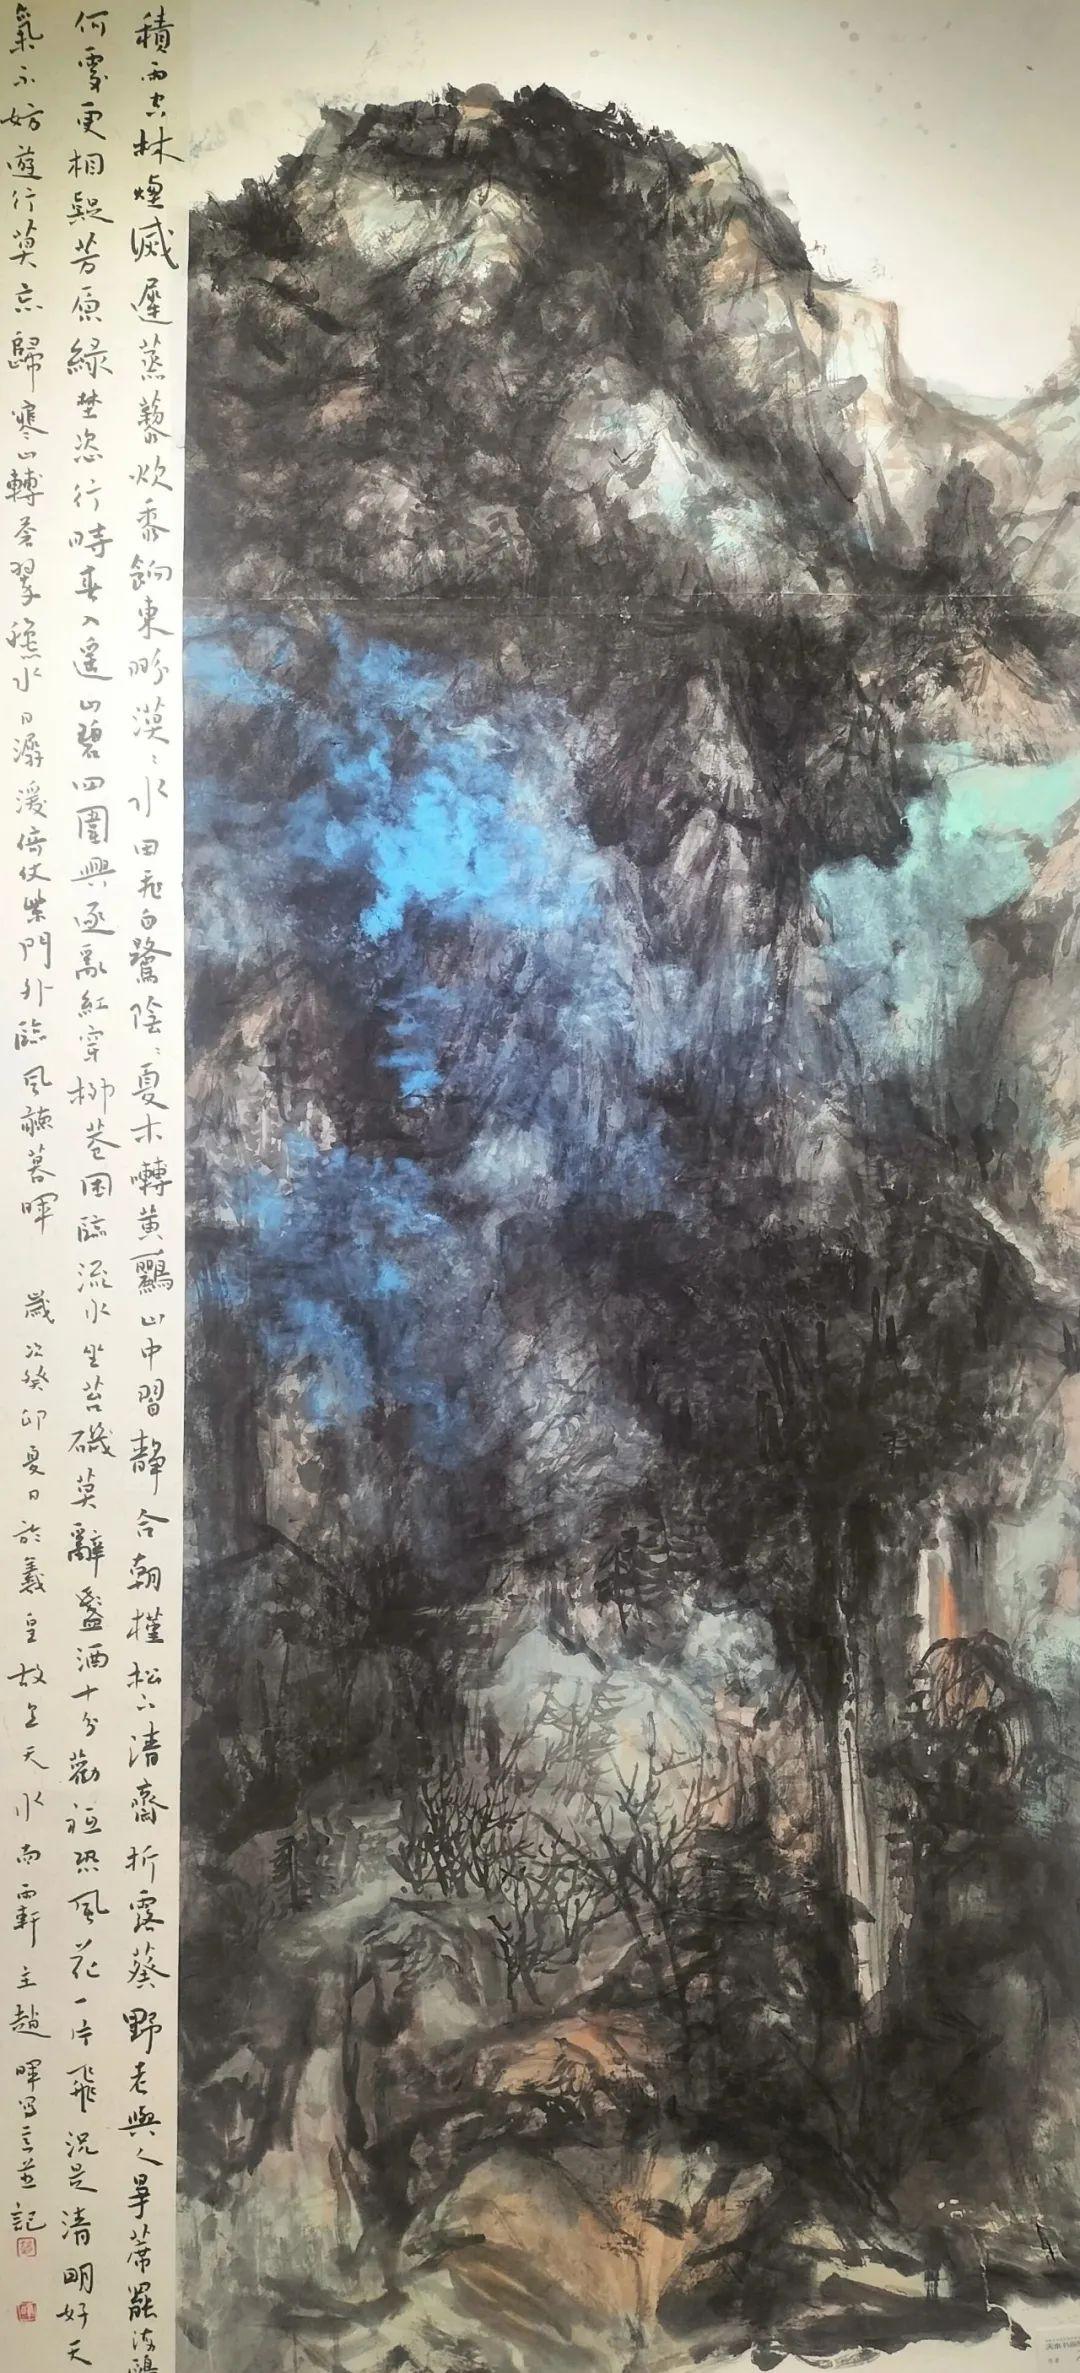 積雨空林煙滅遲蒸藜炊黍餉東畭漠漠水田飛白鷺陰陰夏木囀黃鸝山中習靜合朝槿松下清齋折露葵野老與人爭席罷海鷗
何處更相疑芳原綠埜恣行時春入遙山碧四圍興逐亂紅穿柳巷困臨流水坐苔磯莫辭盞酒十分勸祇恐風花一片飛況是清明好天
氣不妨遊行莫忘歸寒山轉蒼翠穐水日潺湲倚仗柴門外臨風聽暮暉 歲次癸卯夏日於羲皇故里天水南雨軒主趙暉写並記